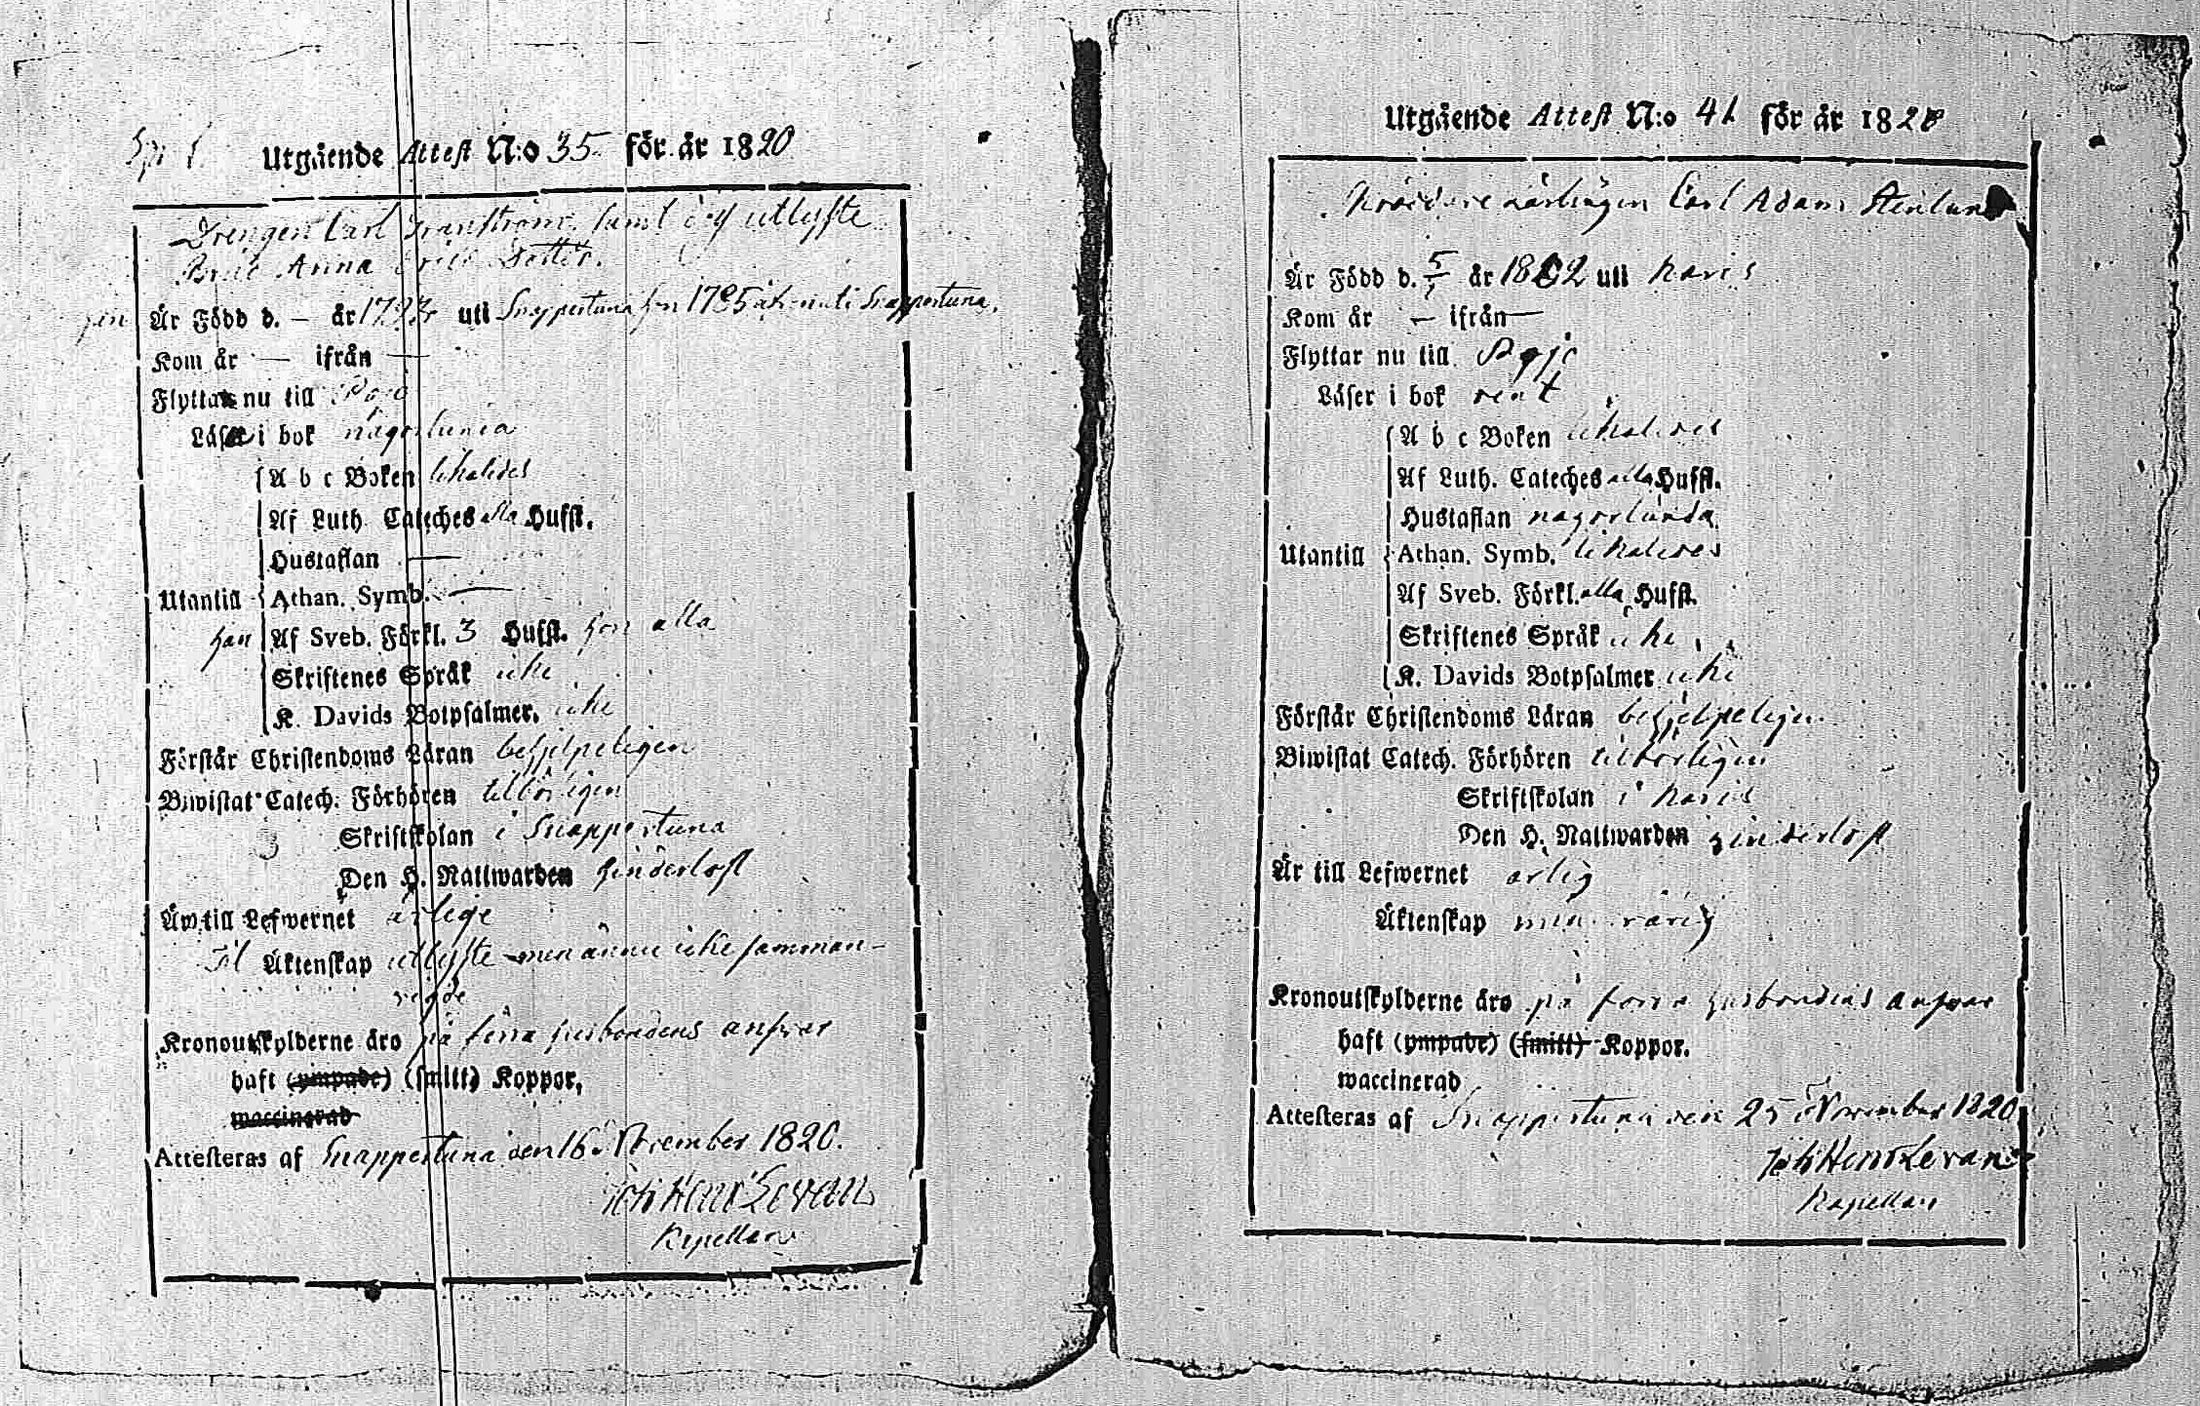 Utgående Attest N:o 35 för år 1820
Drengen Carl Granström samt des utlyste
Brud Anna Erics Dotter.
Är Född d. — år 1793 uti Snappertuna hon 1795 uti Snappertuna.
Kom år — ifrån —
Flyttar nu till Pojo
Läser i bok någorlunda
A b c Boken likaledes
Af Luth. Cateches alla Hufst.
Hustaflan —
Utantill Athan. Symb. —
han Af Sveb. Förkl. 3 Hufst. hon alla
Skriftenes Språk icke
K. Davids Botpsalmer. icke
Förstår Christendoms Läran behjelpeligen
Biwistat Catech. Förhören tilbörligen
Skriftskolan i Snappertuna
Den H. Nattwarden hinderlöst
Är till Lefwernet ärlige
Til Äktenskap utlyste men ännu icke samman-
vigde
Kronoutskylderne äro på förra husbondens answar
haft (ympade) (smitt) Koppor,
waccinerad
Attesteras af Snappertuna den 16 November 1820.
Joh Henr Levan
Kapellan
Utgående Attest N:o 41 för år 1820
Skräddare Lärlingen Carl Adam Stenlund
Är Född d. 5/7 år 1802 uti Karis
Kom år — ifrån —
Flyttar nu till Pojo
Läser i bok rent
A b c Boken likaledes
Af Luth. Cateches alla Hufst.
Hustaflan någorlunda
Utantill Athan. Symb. likaledes
Af Sveb. Förkl. alla Hufst.
Skriftenes Språk icke
K. Davids Botpsalmer icke
Förstår Christendoms Läran behjelpeligen
Biwistat Catech. Förhören tilbörligen
Skriftskolan i Karis
Den H. Nattwarden hinderlöst
Är till Lefwernet ärlig
Äktenskap minderårig
Kronoutskylderne äro på förra husbondens answar
haft (ympade) (smitt) Koppor.
waccinerad
Attesteras af Snappertuna den 25 November 1820
Joh Henr Levan
Kapellan